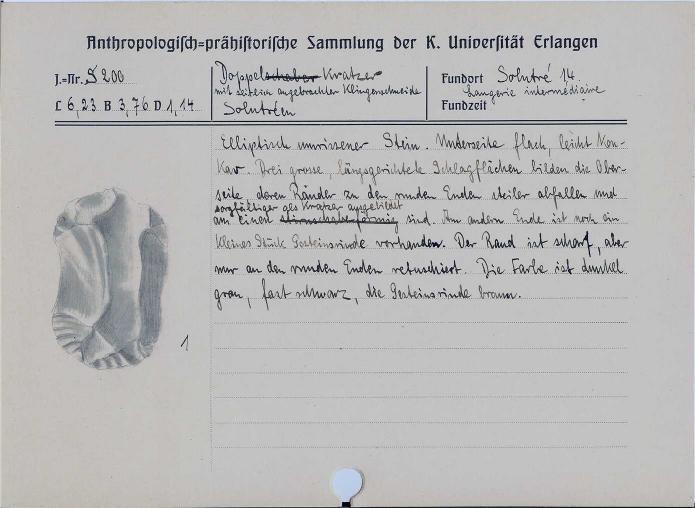 Anthropologisch=prähistorische Sammlung der K. Universität Erlangen
J.=Nr. S 200
L 6,23 B 3,76 D 1,14
Doppelschaber Kratzer
mit seitlich angebrachter Klingenschneide
Solutréen
Fundort Solutré 14.
Laugerie intermédiaire
Fundzeit
Elliptisch umrissener Stein. Unterseite flach, leicht kon-
kav. Drei grosse, längsgerichtete Schlagflächen bilden die Ober-
seite, deren Ränder zu den runden Enden steiler abfallen und
sorgfältiger als Kratzer ausgebildet
am einen stirnschaberförmig sind. Am andern Ende ist noch ein
kleines Stück Gesteinsrinde vorhanden. Der Rand ist scharf, aber
nur an den runden Enden retuschiert. Die Farbe ist dunkel
grau, fast schwarz, die Gesteinsrinde braun.
1